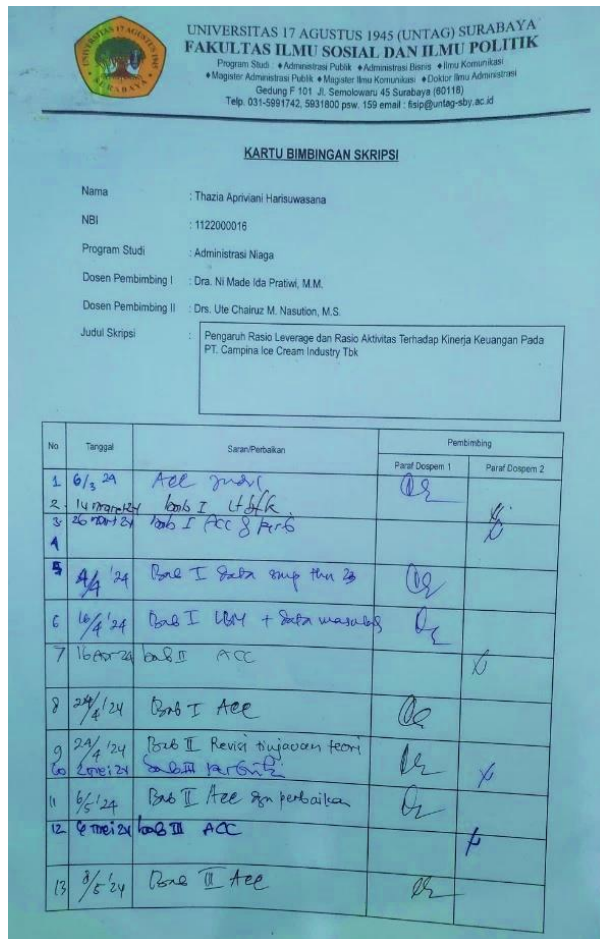 UNIVERSITAS 17 AGUSTUS 1945 (UNTAG) SURABAYA
FAKULTAS ILMU SOSIAL DAN ILMU POLITIK
Program Studi : ♦Administrasi Publik ♦Administrasi Bisnis ♦Ilmu Komunikasi
♦Magister Administrasi Publik ♦Magister Ilmu Komunikasi ♦Doktor Ilmu Administrasi
Gedung F 101 Jl. Semolowaru 45 Surabaya (60118)
Telp. 031-5991742, 5931800 psw. 159 email : fisip@untag-sby.ac.id
KARTU BIMBINGAN SKRIPSI
Nama : Thazia Apriviani Harisuwasana
NBI : 1122000016
Program Studi : Administrasi Niaga
Dosen Pembimbing I : Dra. Ni Made Ida Pratiwi, M.M.
Dosen Pembimbing II : Drs. Ute Chairuz M. Nasution, M.S.
Judul Skripsi : Pengaruh Rasio Leverage dan Rasio Aktivitas Terhadap Kinerja Keuangan Pada
PT. Campina Ice Cream Industry Tbk
No Tanggal Saran/Perbaikan Pembimbing
Paraf Dospem 1 Paraf Dospem 2
1 6/3 24 Acc Judul
2. 14 maret 24 bab I
3. 26 mart 24 bab I ACC
4
5 4/4 '24 Bab I data thn 23
6 16/4 '24 Bab I LBM + data
7 16 Apr 24 bab II ACC
8 24/4 '24 Bab I Acc
9 24/4 '24 Bab II Revisi tinjauan teori
10 2 mei 24 bab III
11 6/5 '24 Bab II Acc dgn perbaikan
12 6 mei 24 bab III ACC
13 8/5 '24 Bab III Acc